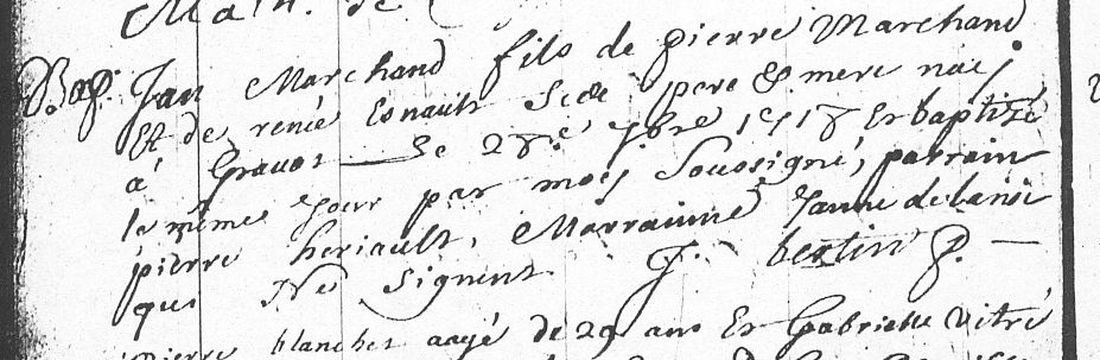 Bap. Jan Marchand fils de pierre Marchand
Et de renée Esnault pere & mere naij
á Gravot Le 28e 7bre 1718 Et baptizé
le même jour par moij Soussigné, parrain
pierre heriault, Marrainne Janne
qui Ne Signent. J. bertin P.
pierre blanchet aagé de 29 ans Et Gabrielle vitré